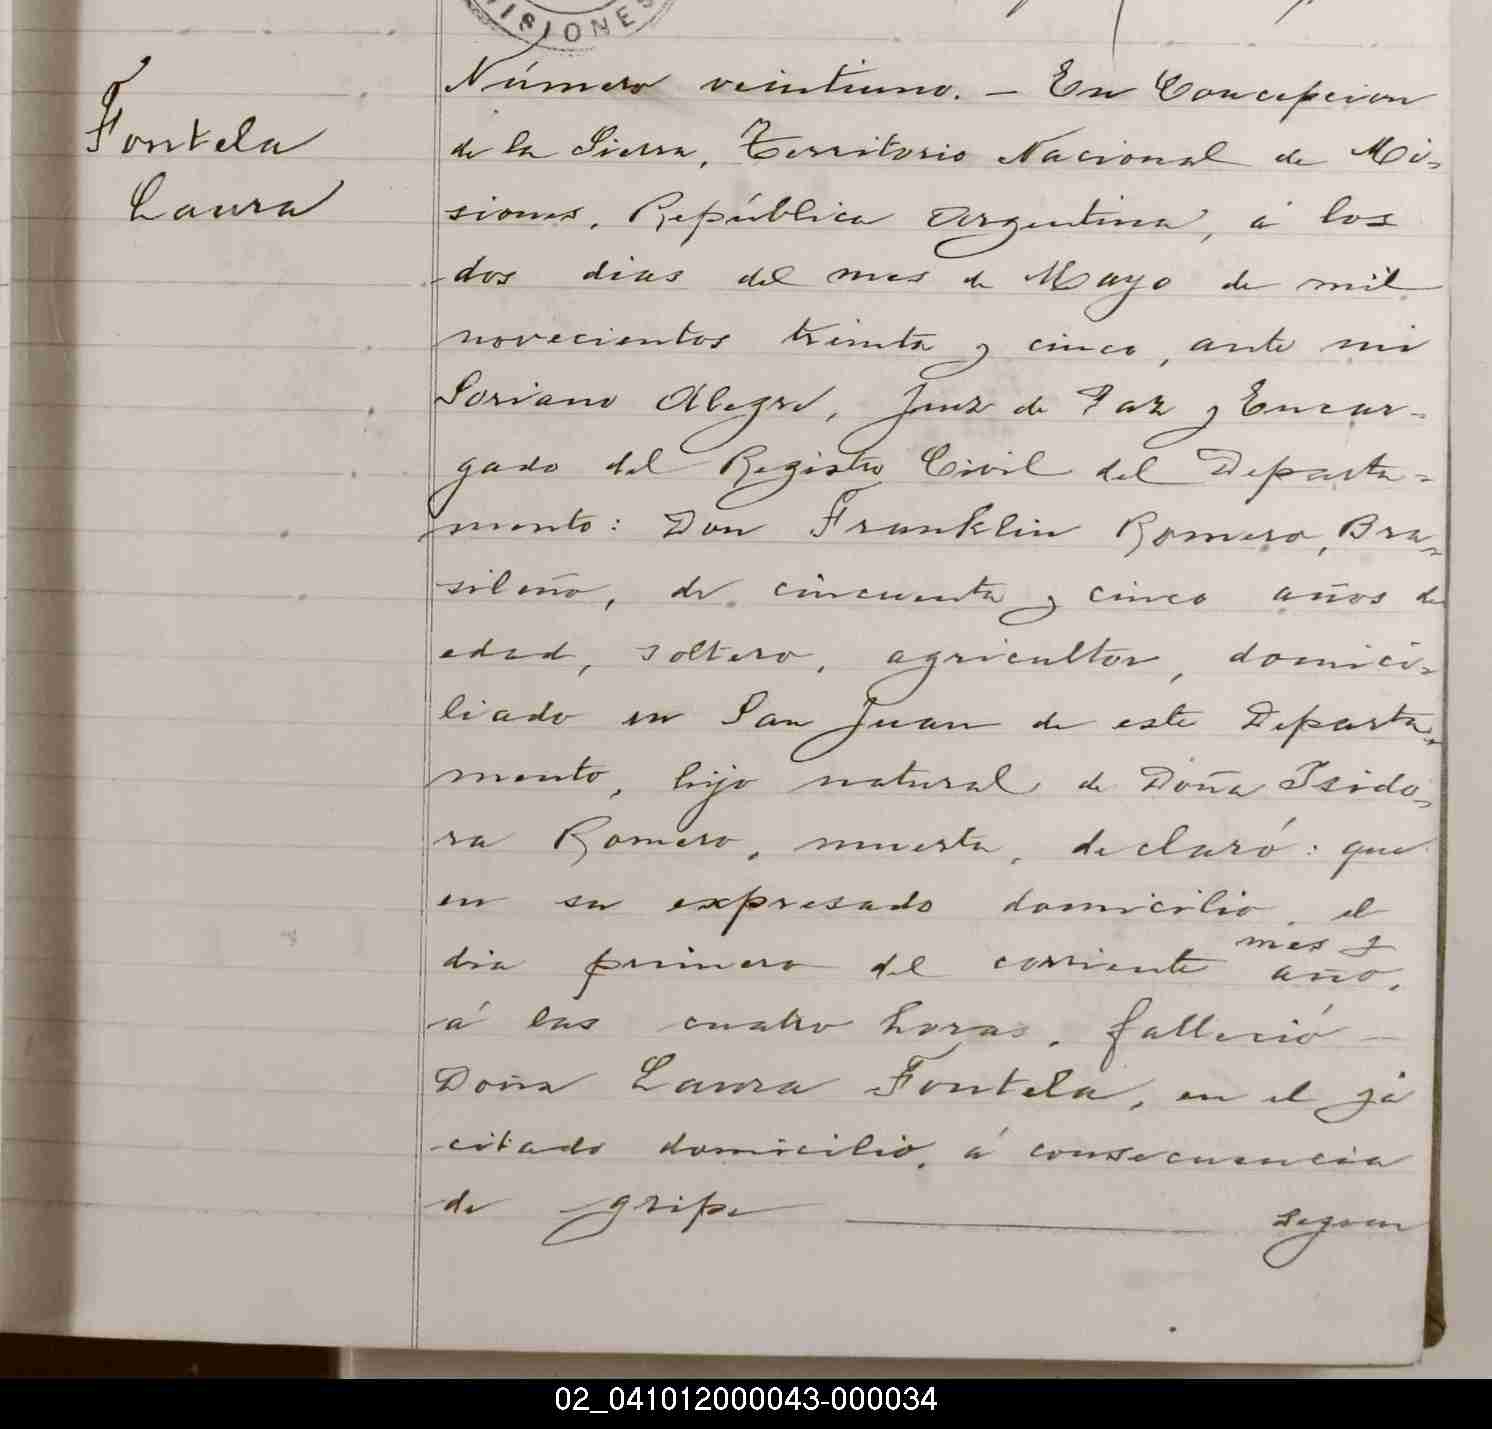 MISIONES
Fontela
Laura
Número veintiuno. — En Concepcion
de la Sierra, Territorio Nacional de Mi-
siones, República Argentina, á los
dos dias del mes de Mayo de mil
novecientos treinta y cinco, ante mi
Soriano Alegre, Juez de Paz y Encar-
gado del Registro Civil del Departa-
mento: Don Franklin Romero, Bra-
sileño, de cincuenta y cinco años de
edad, soltero, agricultor, domici-
liado en San Juan de este Departa-
mento, hijo natural de Doña Isido-
ra Romero, muerta, declaró: que
en su expresado domicilio, el
dia primero del corriente mes y año,
á las cuatro horas, falleció —
Doña Laura Fontela, en el já
citado domicilio, á consecuencia
de gripe ——— segun
02_041012000043-000034